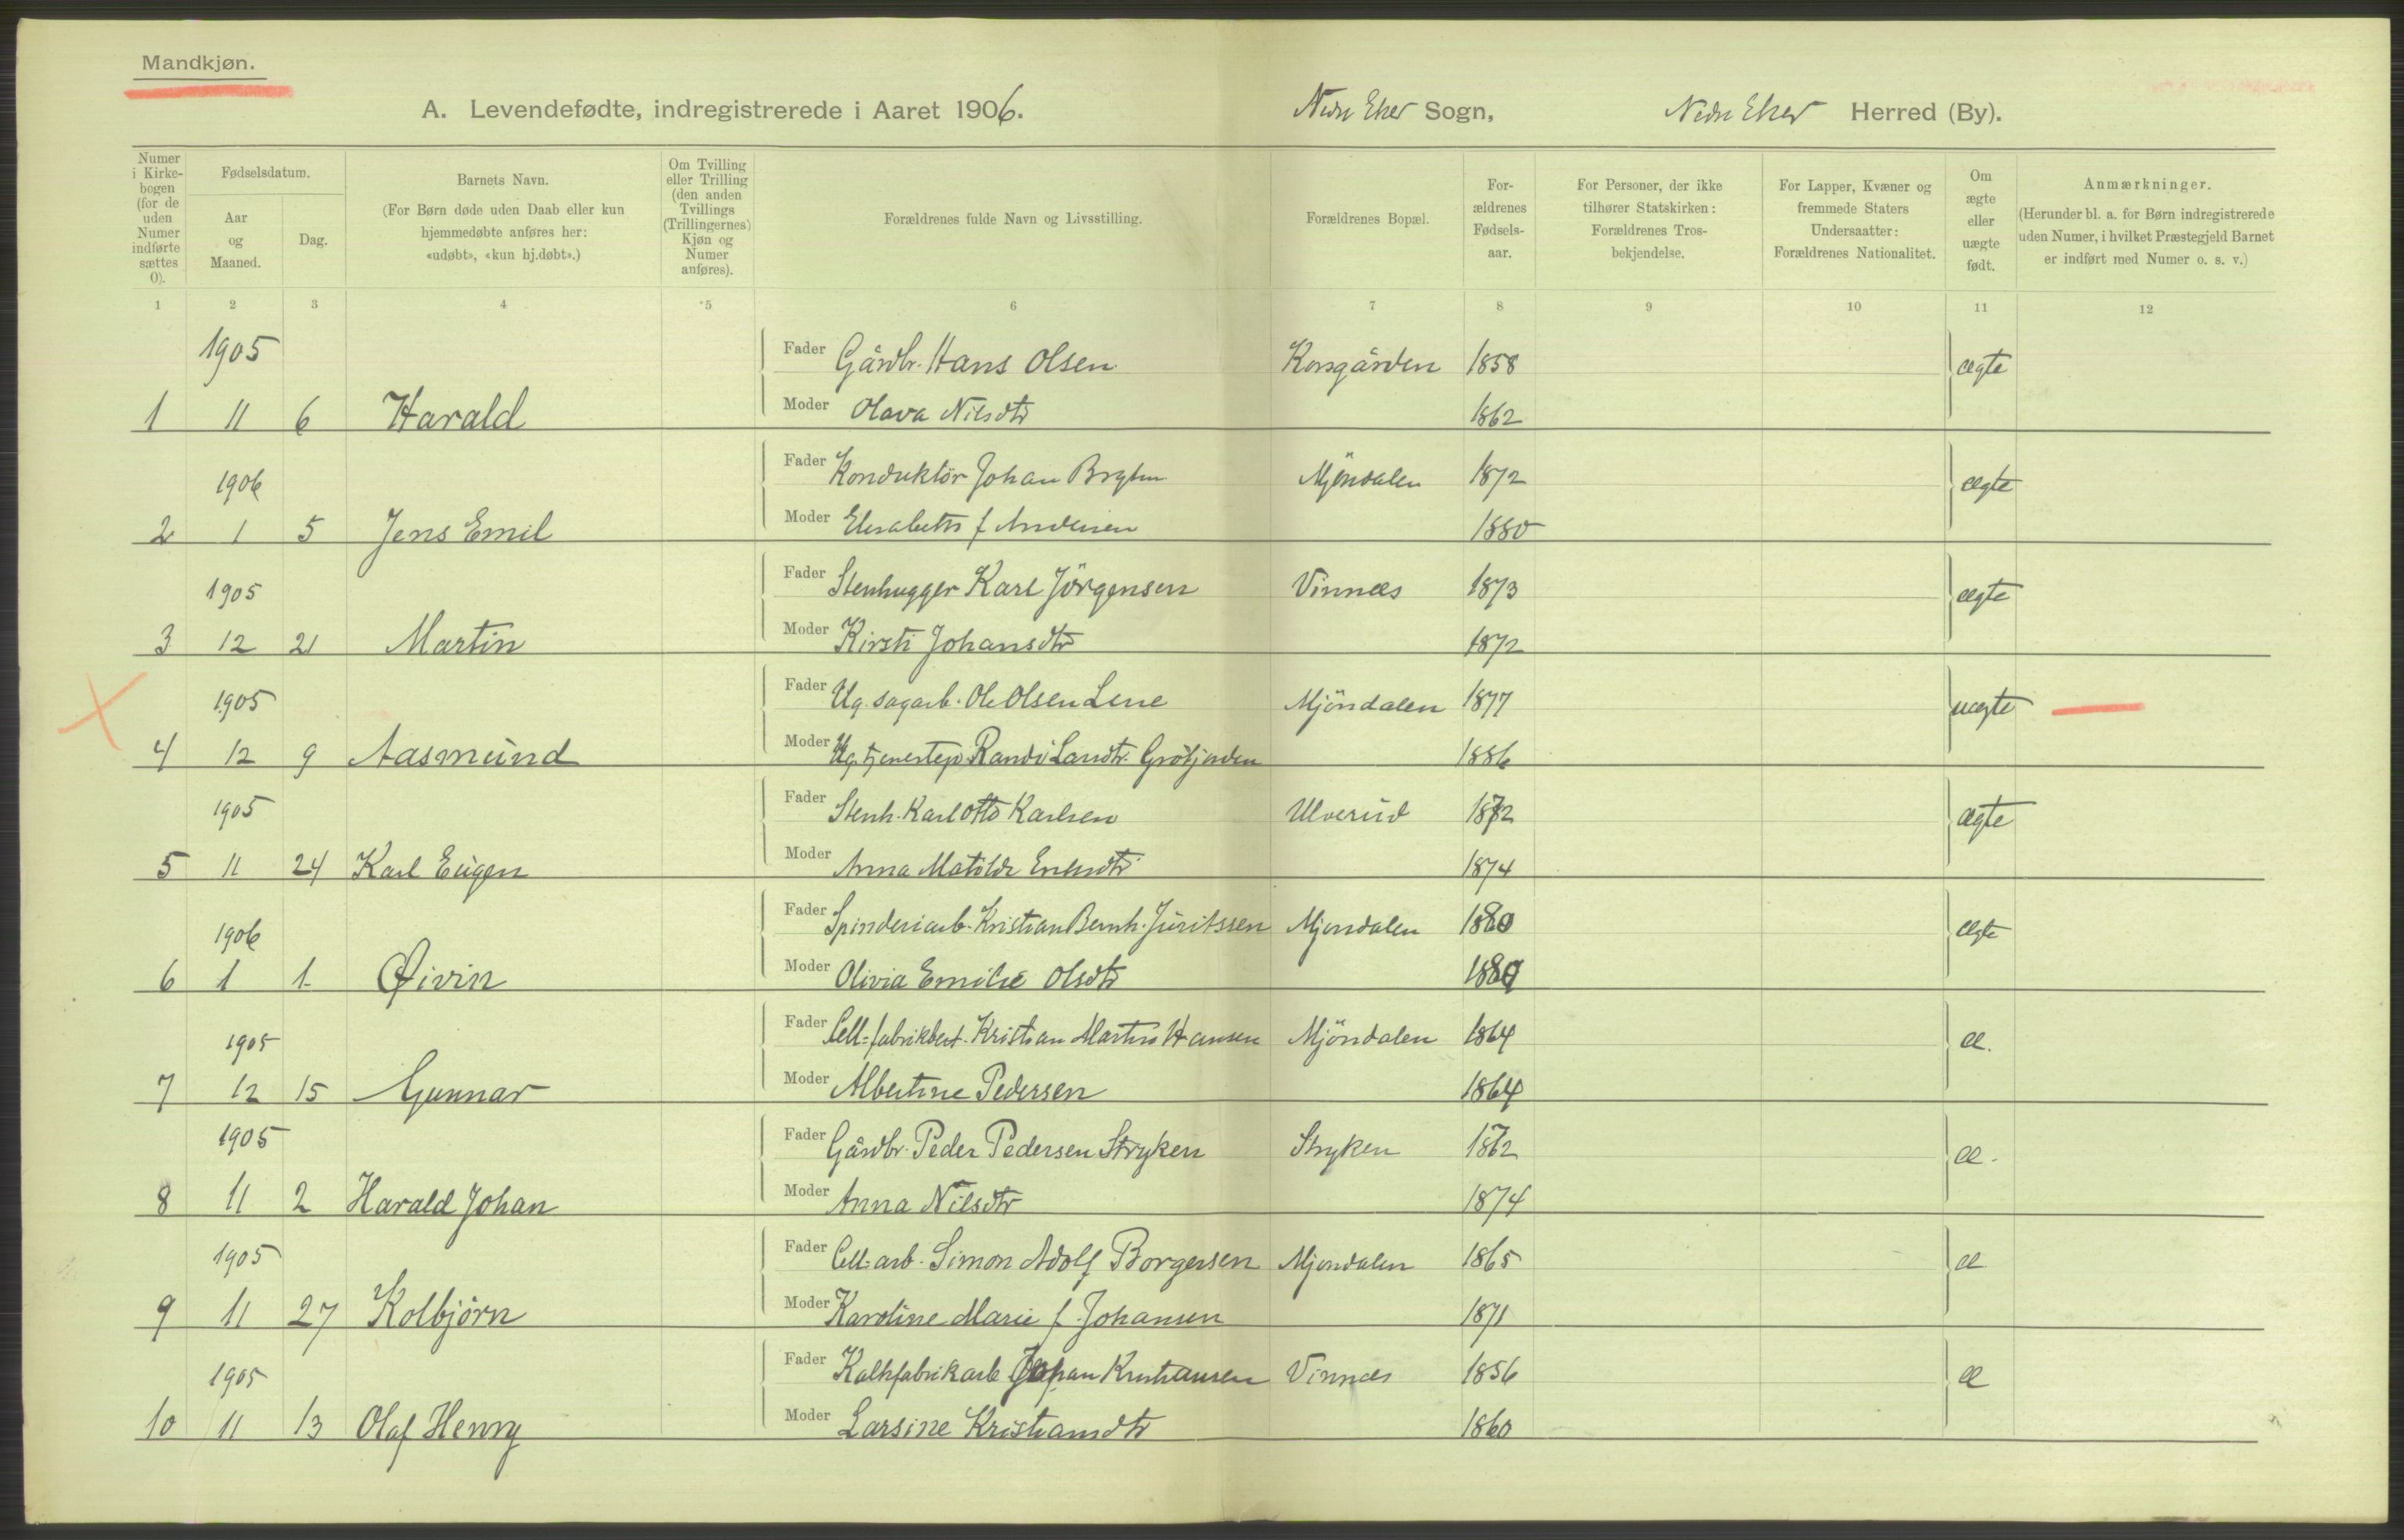 Mandkjøn.
A. Levendefødte, indregistrerede i Aaret 1906. Nedre Eker Sogn, Nedre Eker Herred (By).
Numer i Kirke-bogen (for de uden Numer indførte sættes 0).
Fødselsdatum.
Aar og Maaned.
Dag.
Barnets Navn.
(For Børn døde uden Daab eller kun hjemmedøbte anføres her: «udøbt», «kun hj.døbt».)
Om Tvilling eller Trilling (den anden Tvillings (Trillingernes) Kjøn og Numer anføres).
Forældrenes fulde Navn og Livsstilling.
Forældrenes Bopæl.
For-ældrenes Fødsels-aar.
For Personer, der ikke tilhører Statskirken: Forældrenes Tros-bekjendelse.
For Lapper, Kvæner og fremmede Staters Undersaatter: Forældrenes Nationalitet.
Om ægte eller uægte født.
Anmærkninger.
(Herunder bl. a. for Børn indregistrerede uden Numer, i hvilket Præstegjeld Barnet er indført med Numer o. s. v.)
1 2 3 4 5 6 7 8 9 10 11 12
1905 Fader Gårdbr. Hans Olsen Korsgården 1858 ægte
1 11 6 Harald Moder Olava Nilsdtr 1862
1906 Fader Konduktör Johan Mjöndalen 1872 ægte
2 1 5 Jens Emil Moder Elisabeth f Andersen 1880
1905 Fader Stenhugger Karl Jörgensen Vinnæs 1873 ægte
3 12 21 Martin Moder Kirsti Johansdtr 1872
1905 Fader Ug. sagarb. Ole Olsen Lene Mjöndalen 1877 uægte
4 12 9 Aasmund Moder Ug. tjenestep Randi Larsdtr. 1886
1905 Fader Stenh. Karl Otto Karlsen Ulverud 1872 ægte
5 11 24 Karl Eugen Moder Anna Matilde 1874
1906 Fader Spinderiarb. Kristian Bernh. Juritssen Mjondalen 1880 ægte
6 1 1. Øivin Moder Olivia Emilie Olsdtr
1905 Fader Cell=fabrikbest. Kristian Martin Hansen Mjöndalen 1864 æ.
7 12 15 Gunnar Moder Albertine Pedersen 1864
1905 Fader Gårdbr. Peder Pedersen Stryken Stryken 1872 æ.
8 11 2 Harald Johan Moder Anna Nilsdtr 1874
1905 Fader Cell=arb. Simon Adolf Borgersen Mjondalen 1865 æ
9 11 27 Kolbjörn Moder Karoline Marie f. Johansen 1871
1905 Fader Kalkfabrikarb Johan Kristiansen Vinnæs 1856 æ
10 11 13 Olaf Henry Moder Larsine Kristiansdtr 1860